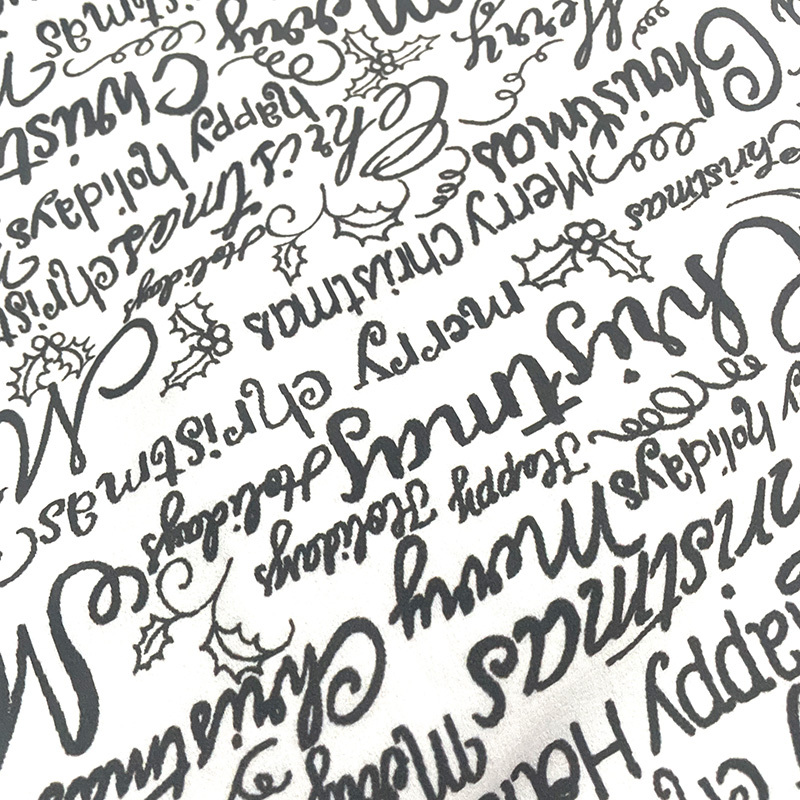 Happy
Merry
Christmas
Merry
holidays
Happy Holidays
Christmas
Holidays
merry christmas
Christmas
Merry Christmas
Holidays
Christmas
Christmas
happy holidays
Merry
Merry